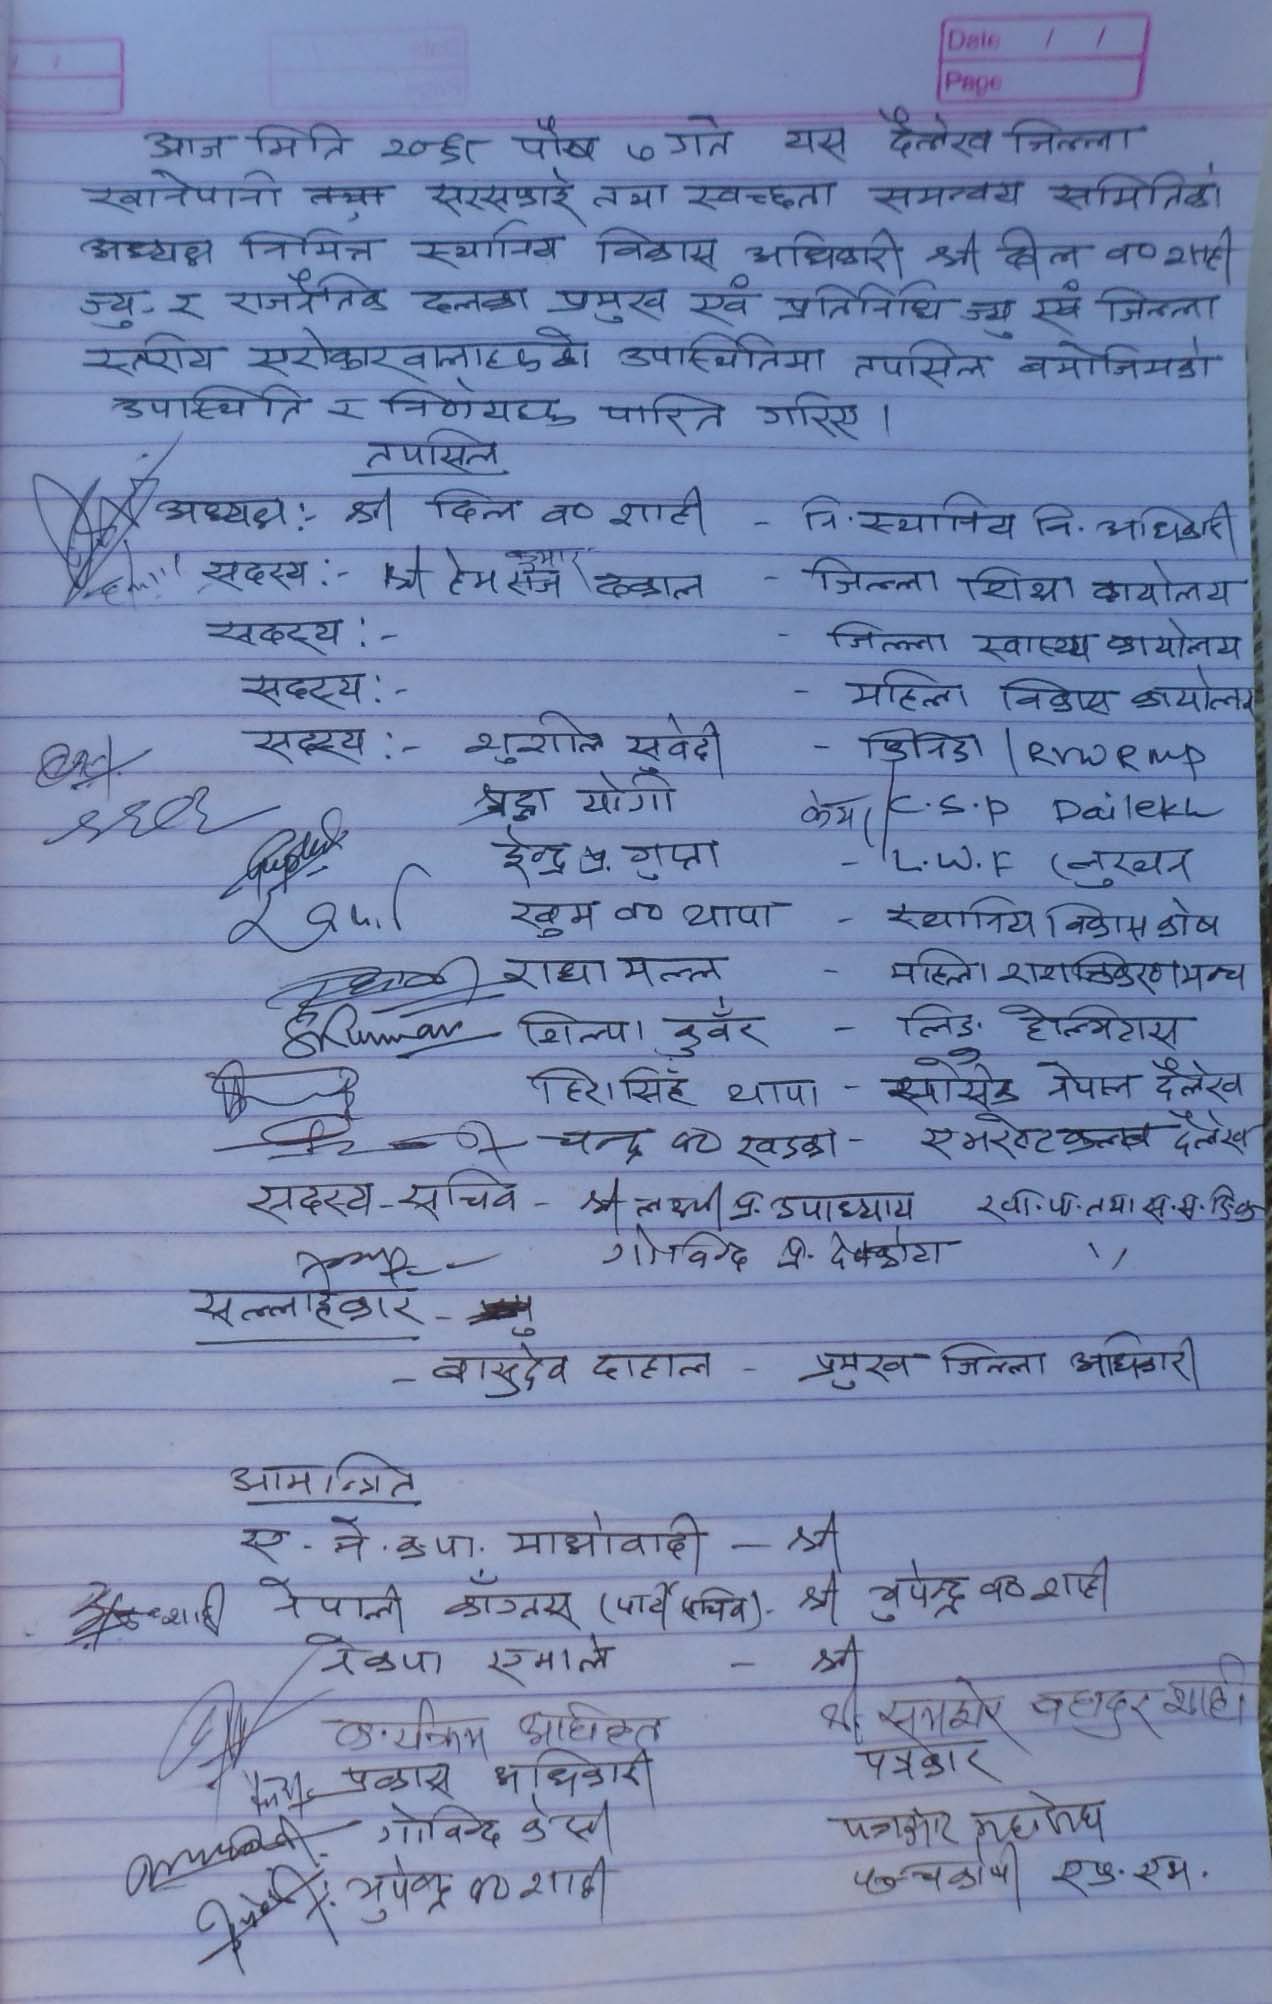 Date / /
Page
आज मिति पौष ७ गते यस दैलेख जिल्ला
खानेपानी तथा सरसफाई तथा स्वच्छता समन्वय समितिको
अध्यक्ष निमित्त स्थानिय विकास अधिकारी श्री दील व० शाही
ज्यु. र राजनैतिक दलका प्रमुख एवं प्रतिनिधि ज्यु एवं जिल्ला
स्तरीय सरोकारवालाहरुको उपास्थितिमा तपसिल बमोजिमको
उपास्थिति र निर्णयहरु पारित गरिए ।
तपसिल
अध्यक्ष :- श्री दिल व० शाही - नि. स्थानिय वि. अधिकारी
सदस्य :- श्री हेम कुमार ढकाल - जिल्ला शिक्षा कार्यालय
सदस्य :- - जिल्ला स्वास्थ्य कार्यालय
सदस्य :- - महिला विकास कार्यालय
सदस्य :- शुशील सुवेदी - डिप्रिडा / RVWRMP
श्रद्धा योगी C.S.P Dailekh
ईन्द्र प्र. गुप्ता - L.W.F
खुम व० थापा - स्थानिय विकास कोष
राधा मल्ल - महिला शसक्तिकरण मन्च
SKunwar शिल्पा कुवँर - लिड. हेल्भिटास
हिरा सिहँ थापा - नेपाल दैलेख
चन्द्र व० खडका - एभरेष्ट क्लब दैलेख
सदस्य - सचिव - श्री लक्ष्मी प्र. उपाध्याय खा. पा. तथा स. स. डि.का
गोविन्द प्र. देवकोटा ''
सल्लाहकार -
- बासुदेव दाहाल - प्रमुख जिल्ला अधिकारी
आमन्त्रित
ए. ने. क.पा. माओवादी - श्री
नेपाली काँग्रेस (पार्टी सचिव) - श्री भुपेन्द्र व० शाही
नेकपा एमाले - श्री
कार्यक्रम अधिकृत श्री समशेर बहादुर शाही
प्रकास अधिकारी पत्रकार
गोविन्द केसी पत्रकार महासंघ
भुपेन्द्र व० शाही पञ्चकोषी एफ. एम.